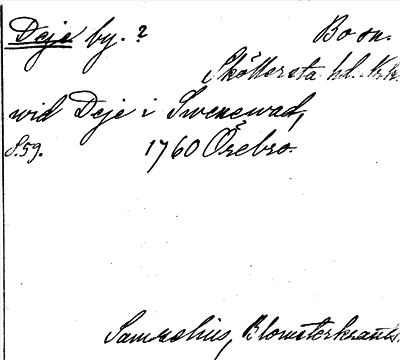 Deje by. ? Bo sn.
Sköllersta hd. Nrk.
wid Deje i Swenewad,
S. 59. 1760 Örebro.
Samzelius, Blomsterkrants.